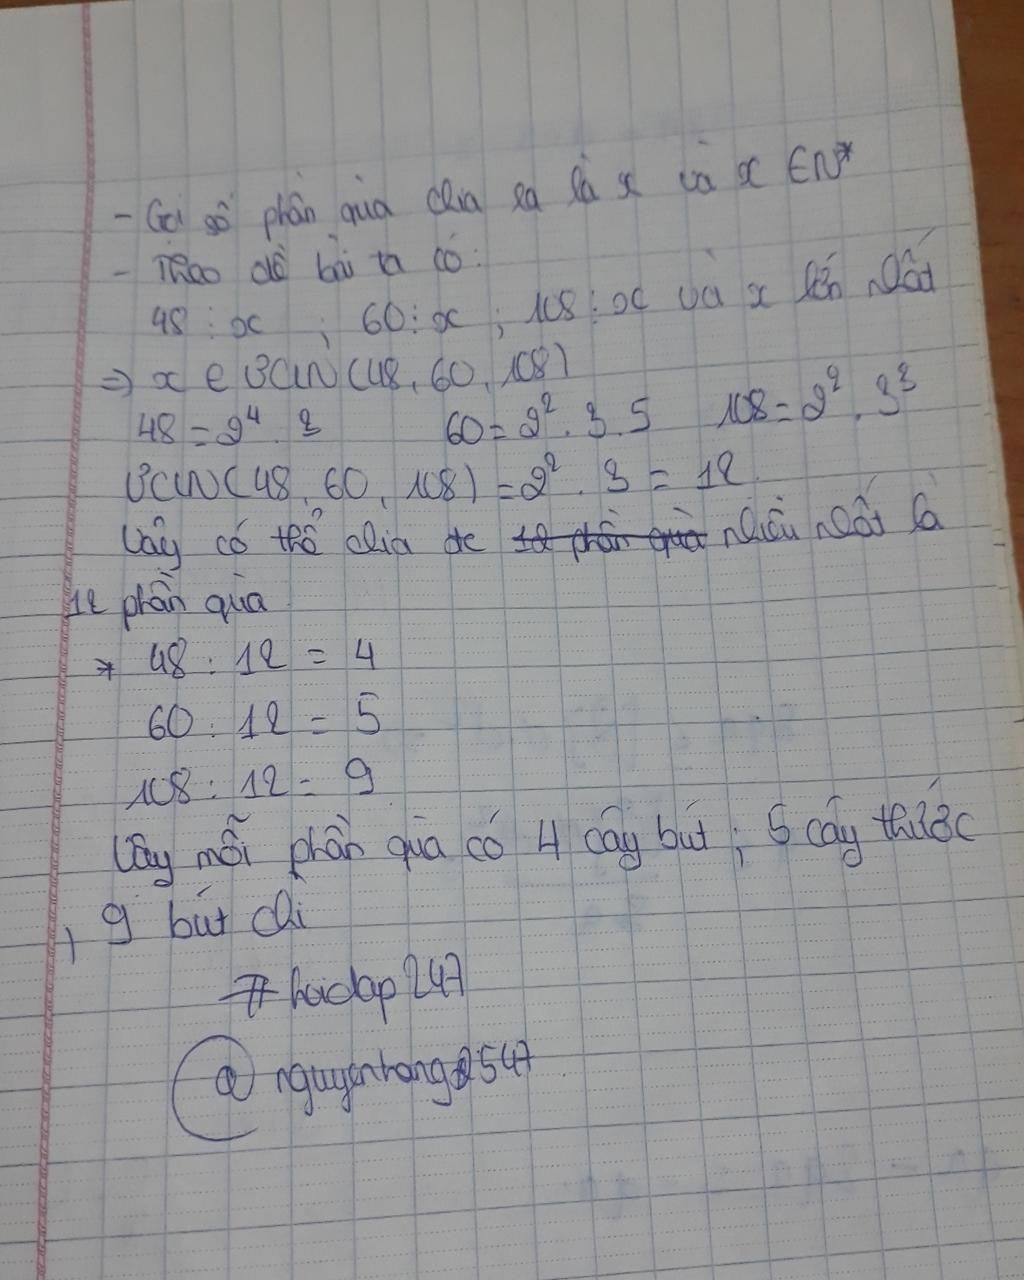 - Gọi số phần quà chia ra là x và x ∈ N*
- Theo đề bài ta có:
48 ⋮ x ; 60 ⋮ x ; 108 ⋮ x và x lớn nhất
=> x ∈ ƯCLN (48, 60, 108)
48 = 2⁴ . 3 60 = 2² . 3 . 5 108 = 2² . 3³
ƯCLN (48, 60, 108) = 2² . 3 = 12
Vậy có thể chia đc 12 phần quà nhiều nhất là
12 phần quà
* 48 : 12 = 4
60 : 12 = 5
108 : 12 = 9
Vậy mỗi phần quà có 4 cây bút ; 5 cây thước
, 9 bút chì
# hoidap247
@ nguyenhang2547